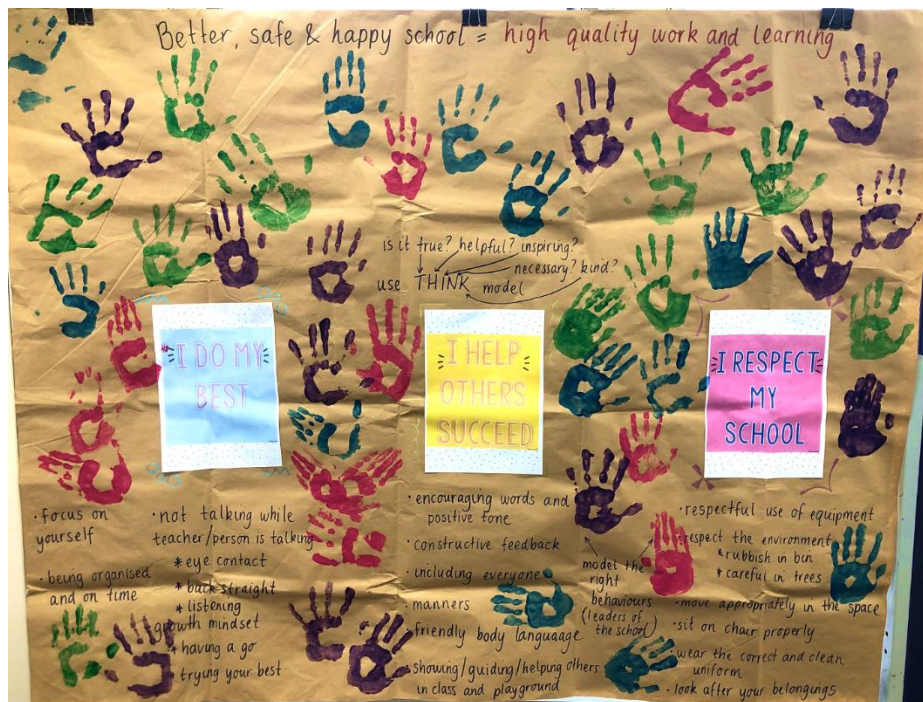 Better, safe & happy school = high quality work and learning
is it true? helpful? inspiring?
necessary? kind?
use THINK model
I DO MY
BEST
I HELP
OTHERS
SUCCEED
I RESPECT
MY
SCHOOL
· focus on
yourself
· being organised
and on time
· not talking while
teacher/person is talking
* eye contact
* back straight
* listening
growth mindset
* having a go
trying your best
· encouraging words and
positive tone
· constructive feedback
· including everyone
· manners
friendly body language
· showing/guiding/helping others
in class and playground
model the
right
behaviours
(leaders of
the school)
· respectful use of equipment
respect the environment
* rubbish in bin
* careful in trees
· move appropriately in the space
· sit on chair properly
· wear the correct and clean
uniform
· look after your belongings